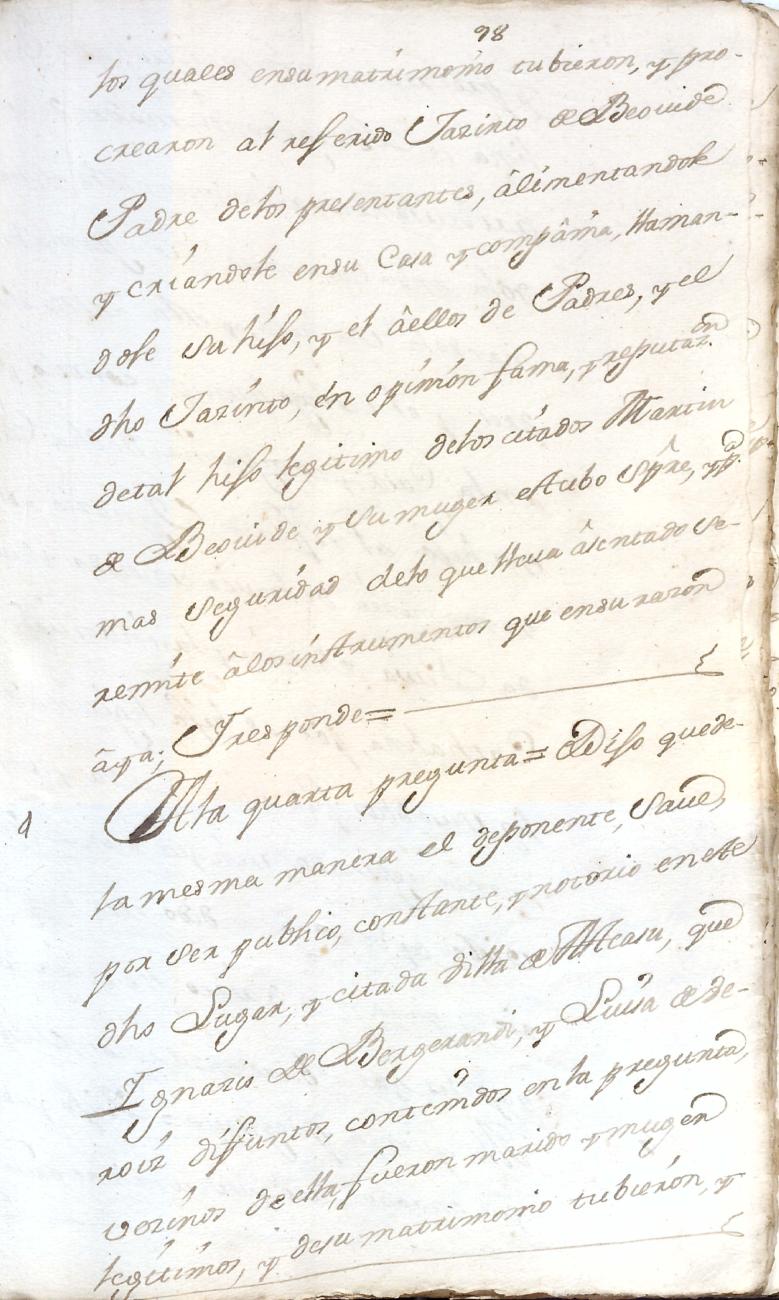 98
los quales ensumatrimonio tubieron, y pro-
crearon al referido Jazinto de Beovide
Padre delos presentantes, âlimentandole
y criandole ensu Casa y compâñia, llaman-
dole su hijo, y el âellos de Padres, y el
dho Jazinto, en opinion fama, y reputaz.on
detal hijo legitimo delos citados Martin
de Beovide y su muger estubo spre, y p.a
mas seguridad delo que lleva âsentado se
remite âlos instrumentos que ensu razon
âya; Y responde=
4
Ala quarta pregunta= Dijo que de
la mesma manera el deponente, save,
por ser publico, constante, y notorio eneste
dho Lugar, y citada Villa de
que
Ignazio de Bergerandi, y Luisa de
difuntos, contenidos en la pregunta,
vezinos de ella, fueron marido y muger
legitimos, y desu matrimonio tubieron, y